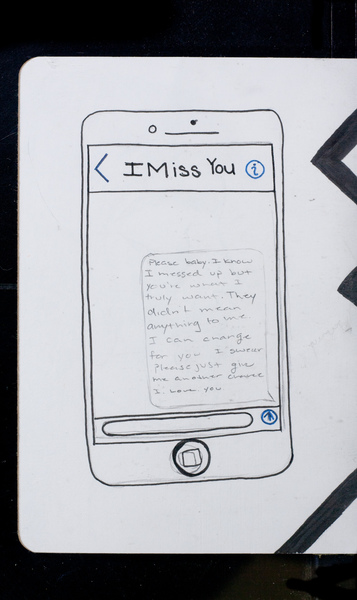 I Miss You
Please baby. I know
I messed up but
you're what I
truly want. They
didn't mean
anything to me
I can change
for you I swear
please just give
me another chance
I love you